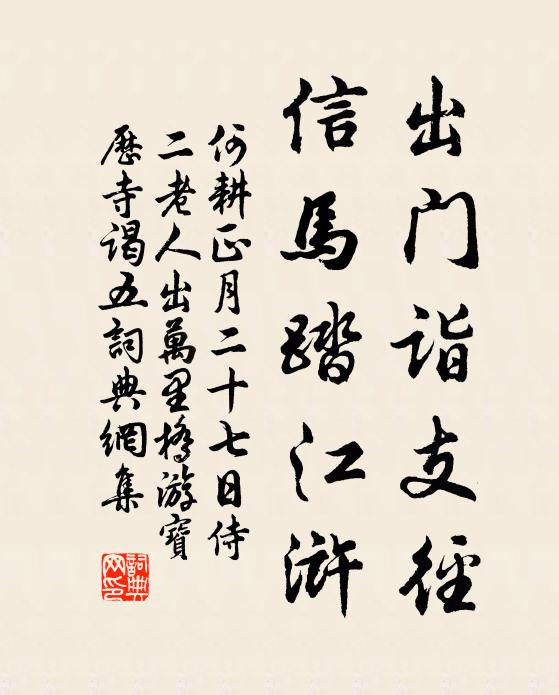 出门诣支径
信馬踏江滸
何耕正月二十七日侍
二老人出萬里橋游寶
歷寺謁五詞典網集
詞典网印